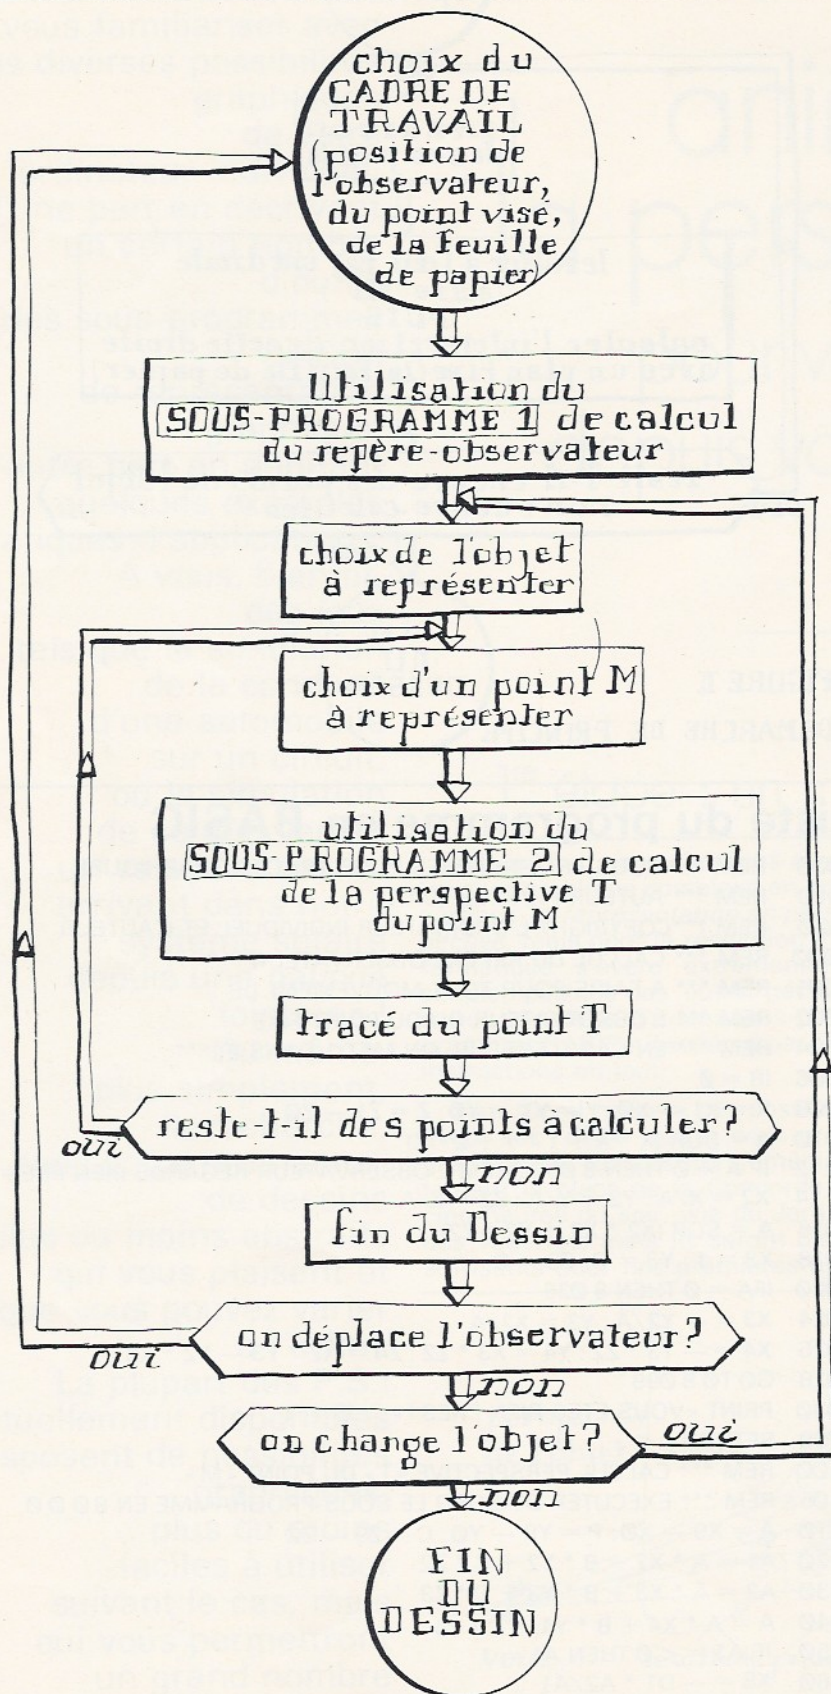 choix du
CADRE DE
TRAVAIL
(position de
l'observateur,
du point visé,
de la feuille
de papier)
Utilisation du
SOUS-PROGRAMME 1 de calcul
du repère-observateur
choix de l'objet
à représenter
choix d'un point M
à représenter
utilisation du
SOUS PROGRAMME 2 de calcul
de la perspective T
du point M
tracé du point T
reste-t-il des points à calculer?
oui
non
fin du Dessin
on déplace l'observateur?
oui
non
on change l'objet?
oui
non
FIN
DU
DESSIN